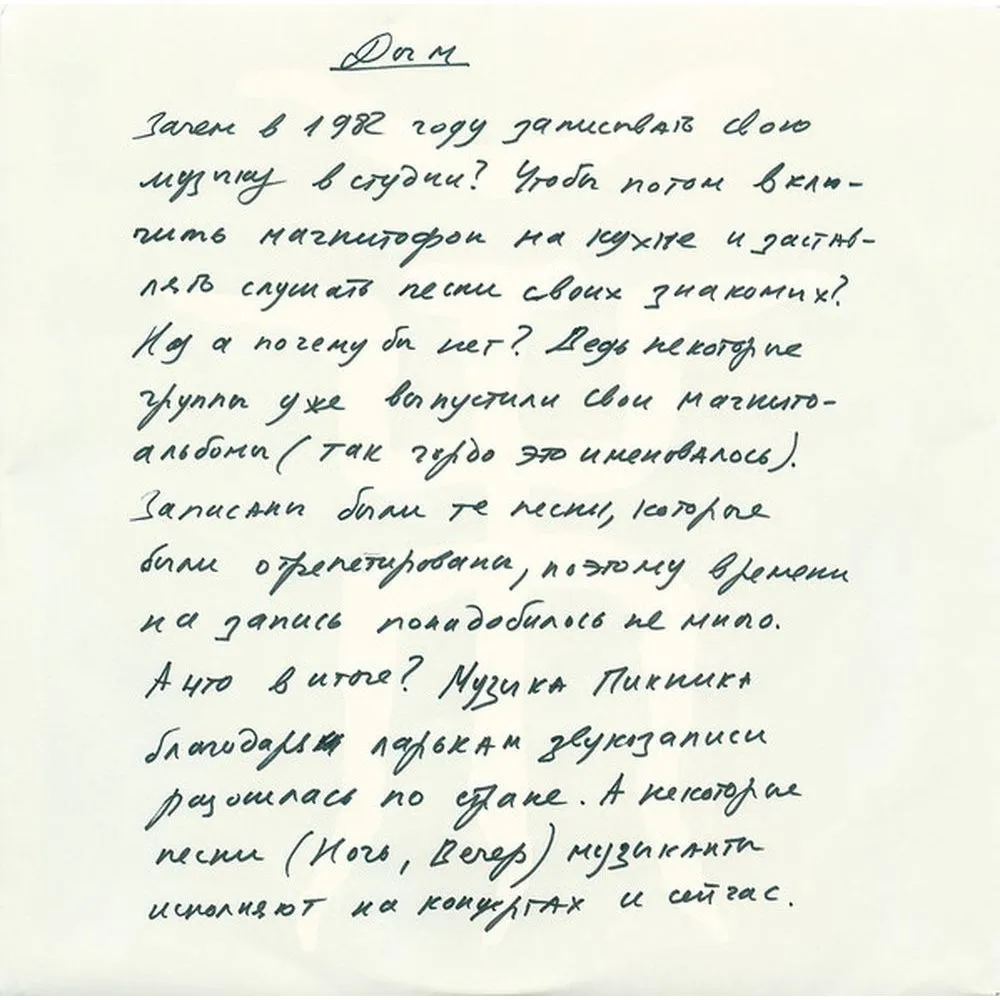 Дым
Зачем в 1982 году записывать свою
музыку в студии? Чтобы потом вклю-
чить магнитофон на кухне и застав-
лять слушать песни своих знакомых?
Ну а почему бы нет? Ведь некоторые
группы уже выпустили свои магнито-
альбомы (так гордо это именовалось).
Записаны были те песни, которые
были отрепетированы, поэтому времени
на запись понадобилось не много.
А что в итоге? Музыка Пикника
благодаря ларькам звукозаписи
разошлась по стране. А некоторые
песни (Ночь, Вечер) музыканты
исполняют на концертах и сейчас.